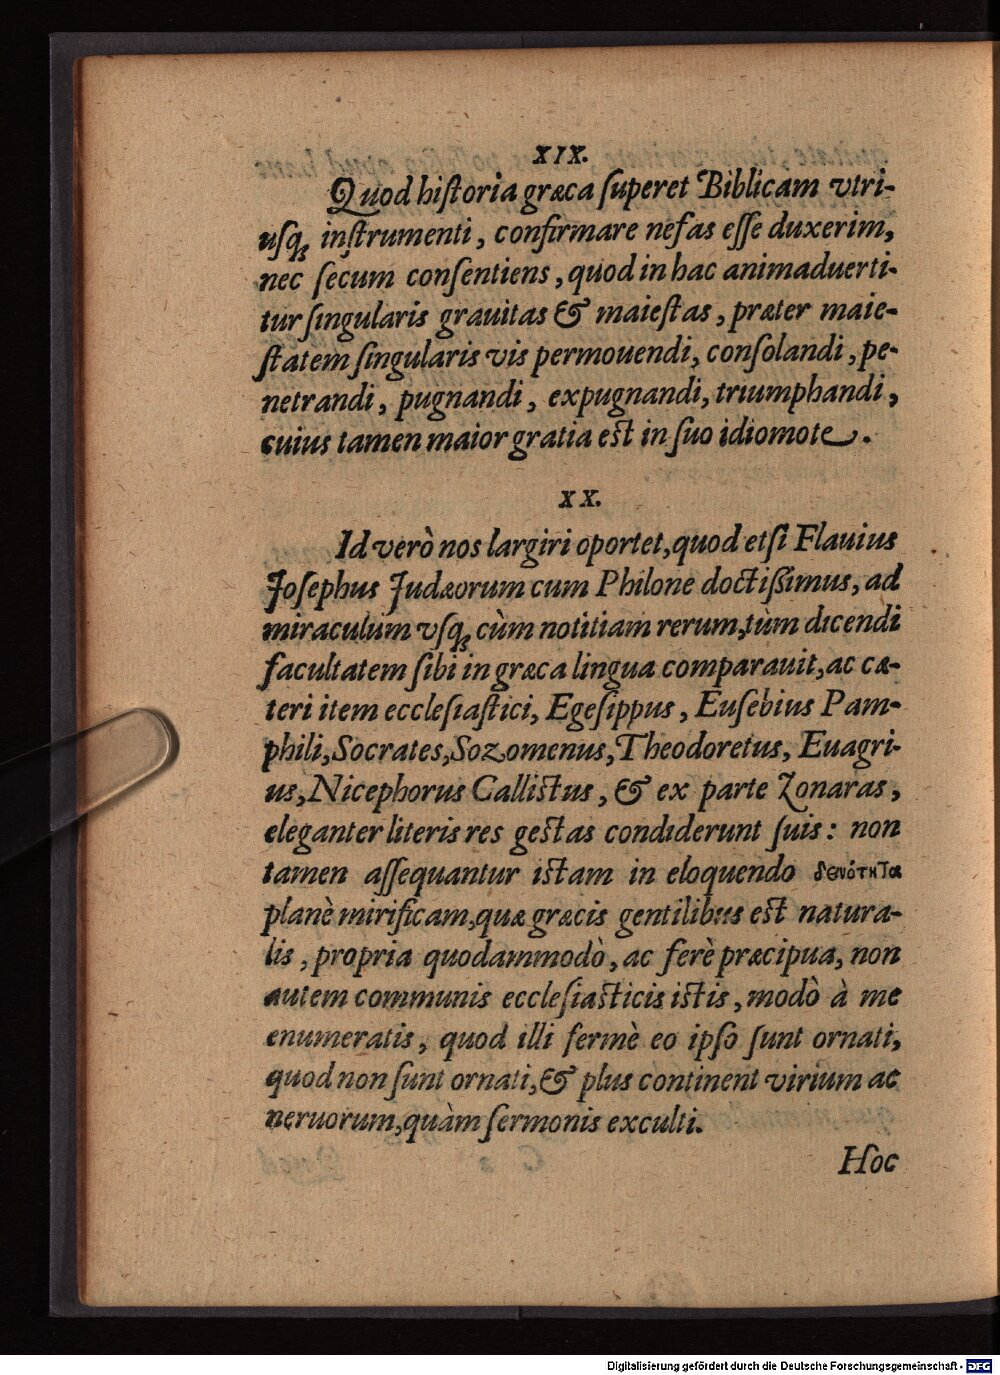 XIX.
Quod hiſtoria græca ſuperet Biblicam vtri-
uſq; inſtrumenti, confirmare nefas eſſe duxerim,
nec ſecum conſentiens, quod in hac animaduerti-
tur ſingularis grauitas & maieſtas, præter maie-
ſtatem ſingularis vis permouendi, conſolandi, pe-
netrandi, pugnandi, expugnandi, triumphandi,
cuius tamen maior gratia eſt in ſuo idiomote.
XX.
Id verò nos largiri oportet, quod etſi Flauius
Joſephus Judæorum cum Philone doctißimus, ad
miraculum vſq; cùm notitiam rerum, tùm dicendi
facultatem ſibi in græca lingua comparauit, ac cæ-
teri item eccleſiaſtici, Egeſippus, Euſebius Pam-
phili, Socrates, Sozomenus, Theodoretus, Euagri-
us, Nicephorus Calliſtus, & ex parte Zonaras,
eleganter literis res geſtas condiderunt ſuis: non
tamen aſſequantur iſtam in eloquendo δεινότηΤα
planè mirificam, quæ græcis gentilibus eſt natura-
lis, propria quodammodò, ac ferè præcipua, non
autem communis eccleſiaſticis iſtis, modò à me
enumeratis, quod illi fermè eo ipſo ſunt ornati,
quod non ſunt ornati, & plus continent virium ac
neruorum, quàm ſermonis exculti.
Hoc
Digitalisierung gefördert durch die Deutsche Forschungsgemeinschaft - DFG